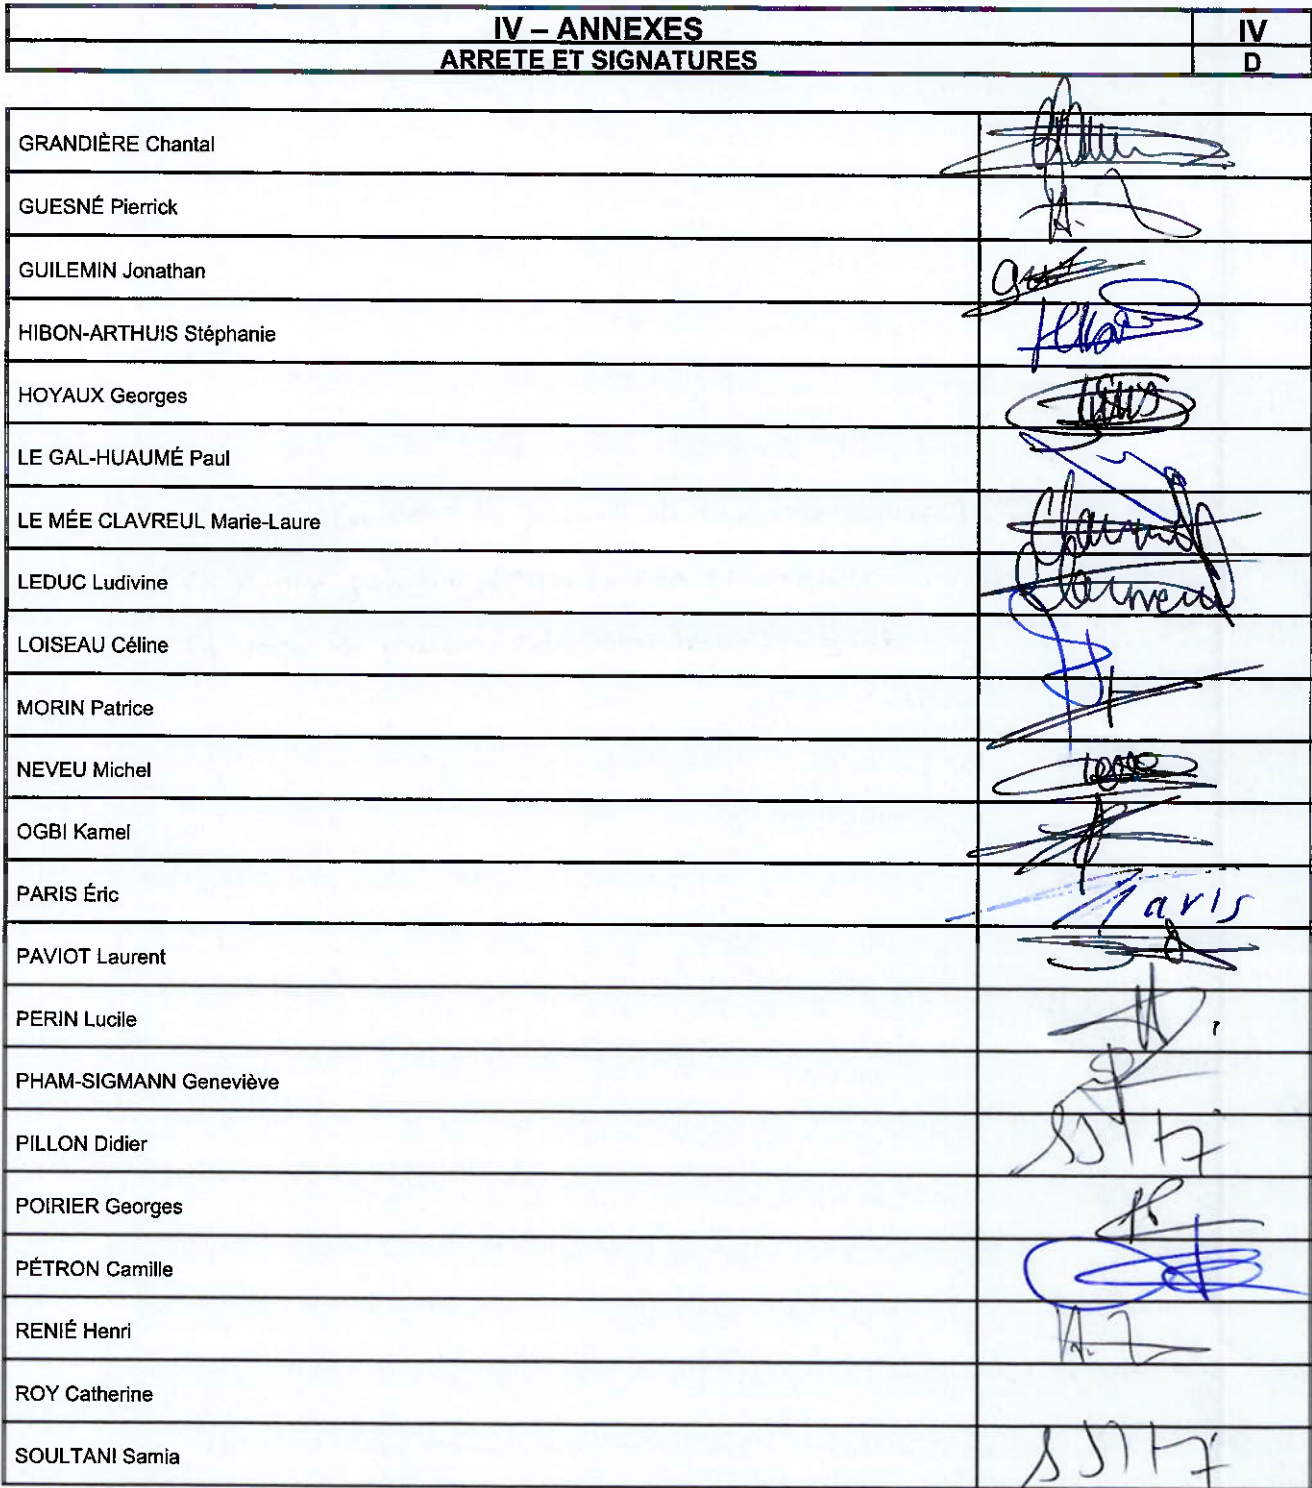 IV – ANNEXES IV
ARRETE ET SIGNATURES D
GRANDIÈRE Chantal
GUESNÉ Pierrick
GUILEMIN Jonathan
HIBON-ARTHUIS Stéphanie
HOYAUX Georges
LE GAL-HUAUMÉ Paul
LE MÉE CLAVREUL Marie-Laure
LEDUC Ludivine
LOISEAU Céline
MORIN Patrice
NEVEU Michel
OGBI Kamel
PARIS Éric Paris
PAVIOT Laurent
PERIN Lucile
PHAM-SIGMANN Geneviève
PILLON Didier
POIRIER Georges
PÉTRON Camille
RENIÉ Henri
ROY Catherine
SOULTANI Samia